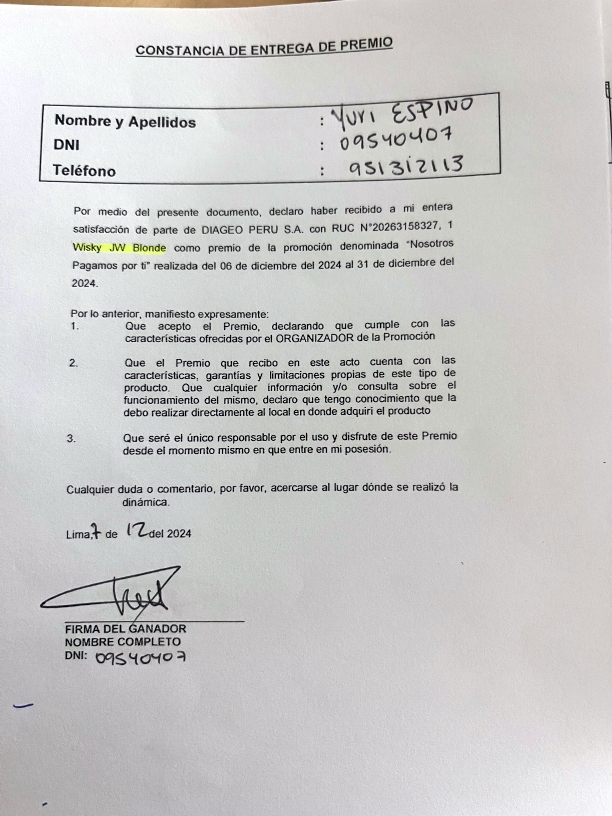 CONSTANCIA DE ENTREGA DE PREMIO
Nombre y Apellidos : YUVI ESPINO
DNI : 09540407
Teléfono : 951312113
Por medio del presente documento, declaro haber recibido a mi entera
satisfacción de parte de DIAGEO PERU S.A. con RUC N°20263158327, 1
Wisky JW Blonde como premio de la promoción denominada "Nosotros
Pagamos por ti" realizada del 06 de diciembre del 2024 al 31 de diciembre del
2024.
Por lo anterior, manifiesto expresamente:
1. Que acepto el Premio, declarando que cumple con las
características ofrecidas por el ORGANIZADOR de la Promoción
2. Que el Premio que recibo en este acto cuenta con las
características, garantías y limitaciones propias de este tipo de
producto. Que cualquier información y/o consulta sobre el
funcionamiento del mismo, declaro que tengo conocimiento que la
debo realizar directamente al local en donde adquirí el producto
3. Que seré el único responsable por el uso y disfrute de este Premio
desde el momento mismo en que entre en mi posesión.
Cualquier duda o comentario, por favor, acercarse al lugar dónde se realizó la
dinámica.
Lima, 7 de 12 del 2024
FIRMA DEL GANADOR
NOMBRE COMPLETO
DNI: 09540407